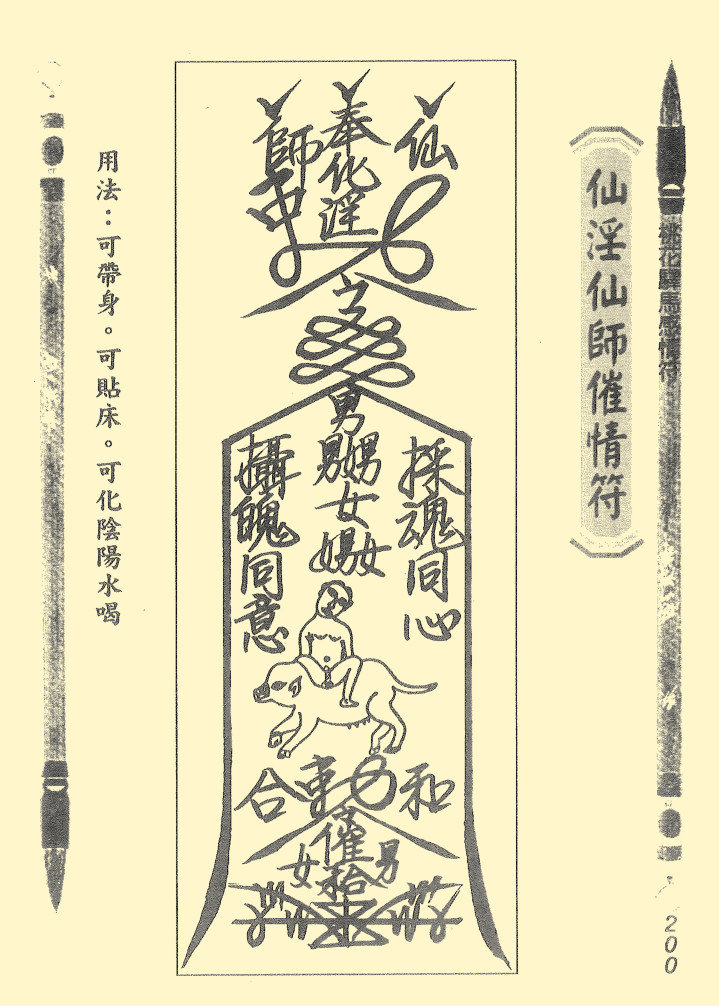 桃花驛馬感情符
仙淫仙師催情符
仙
奉化淫
師
男
女
採魂同心
攝魄同意
和
合
催
男
女
用法：可帶身。可貼床。可化陰陽水喝
200